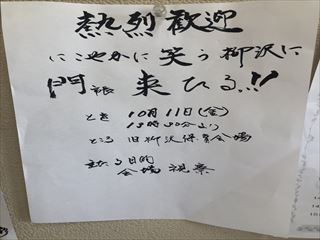 熱烈歓迎
にこやかに笑う柳沢に
門脹 来たる!!
とき 10月11日(金)
18時30分より
ところ 旧柳沢保育会場
主たる目的
会場視察